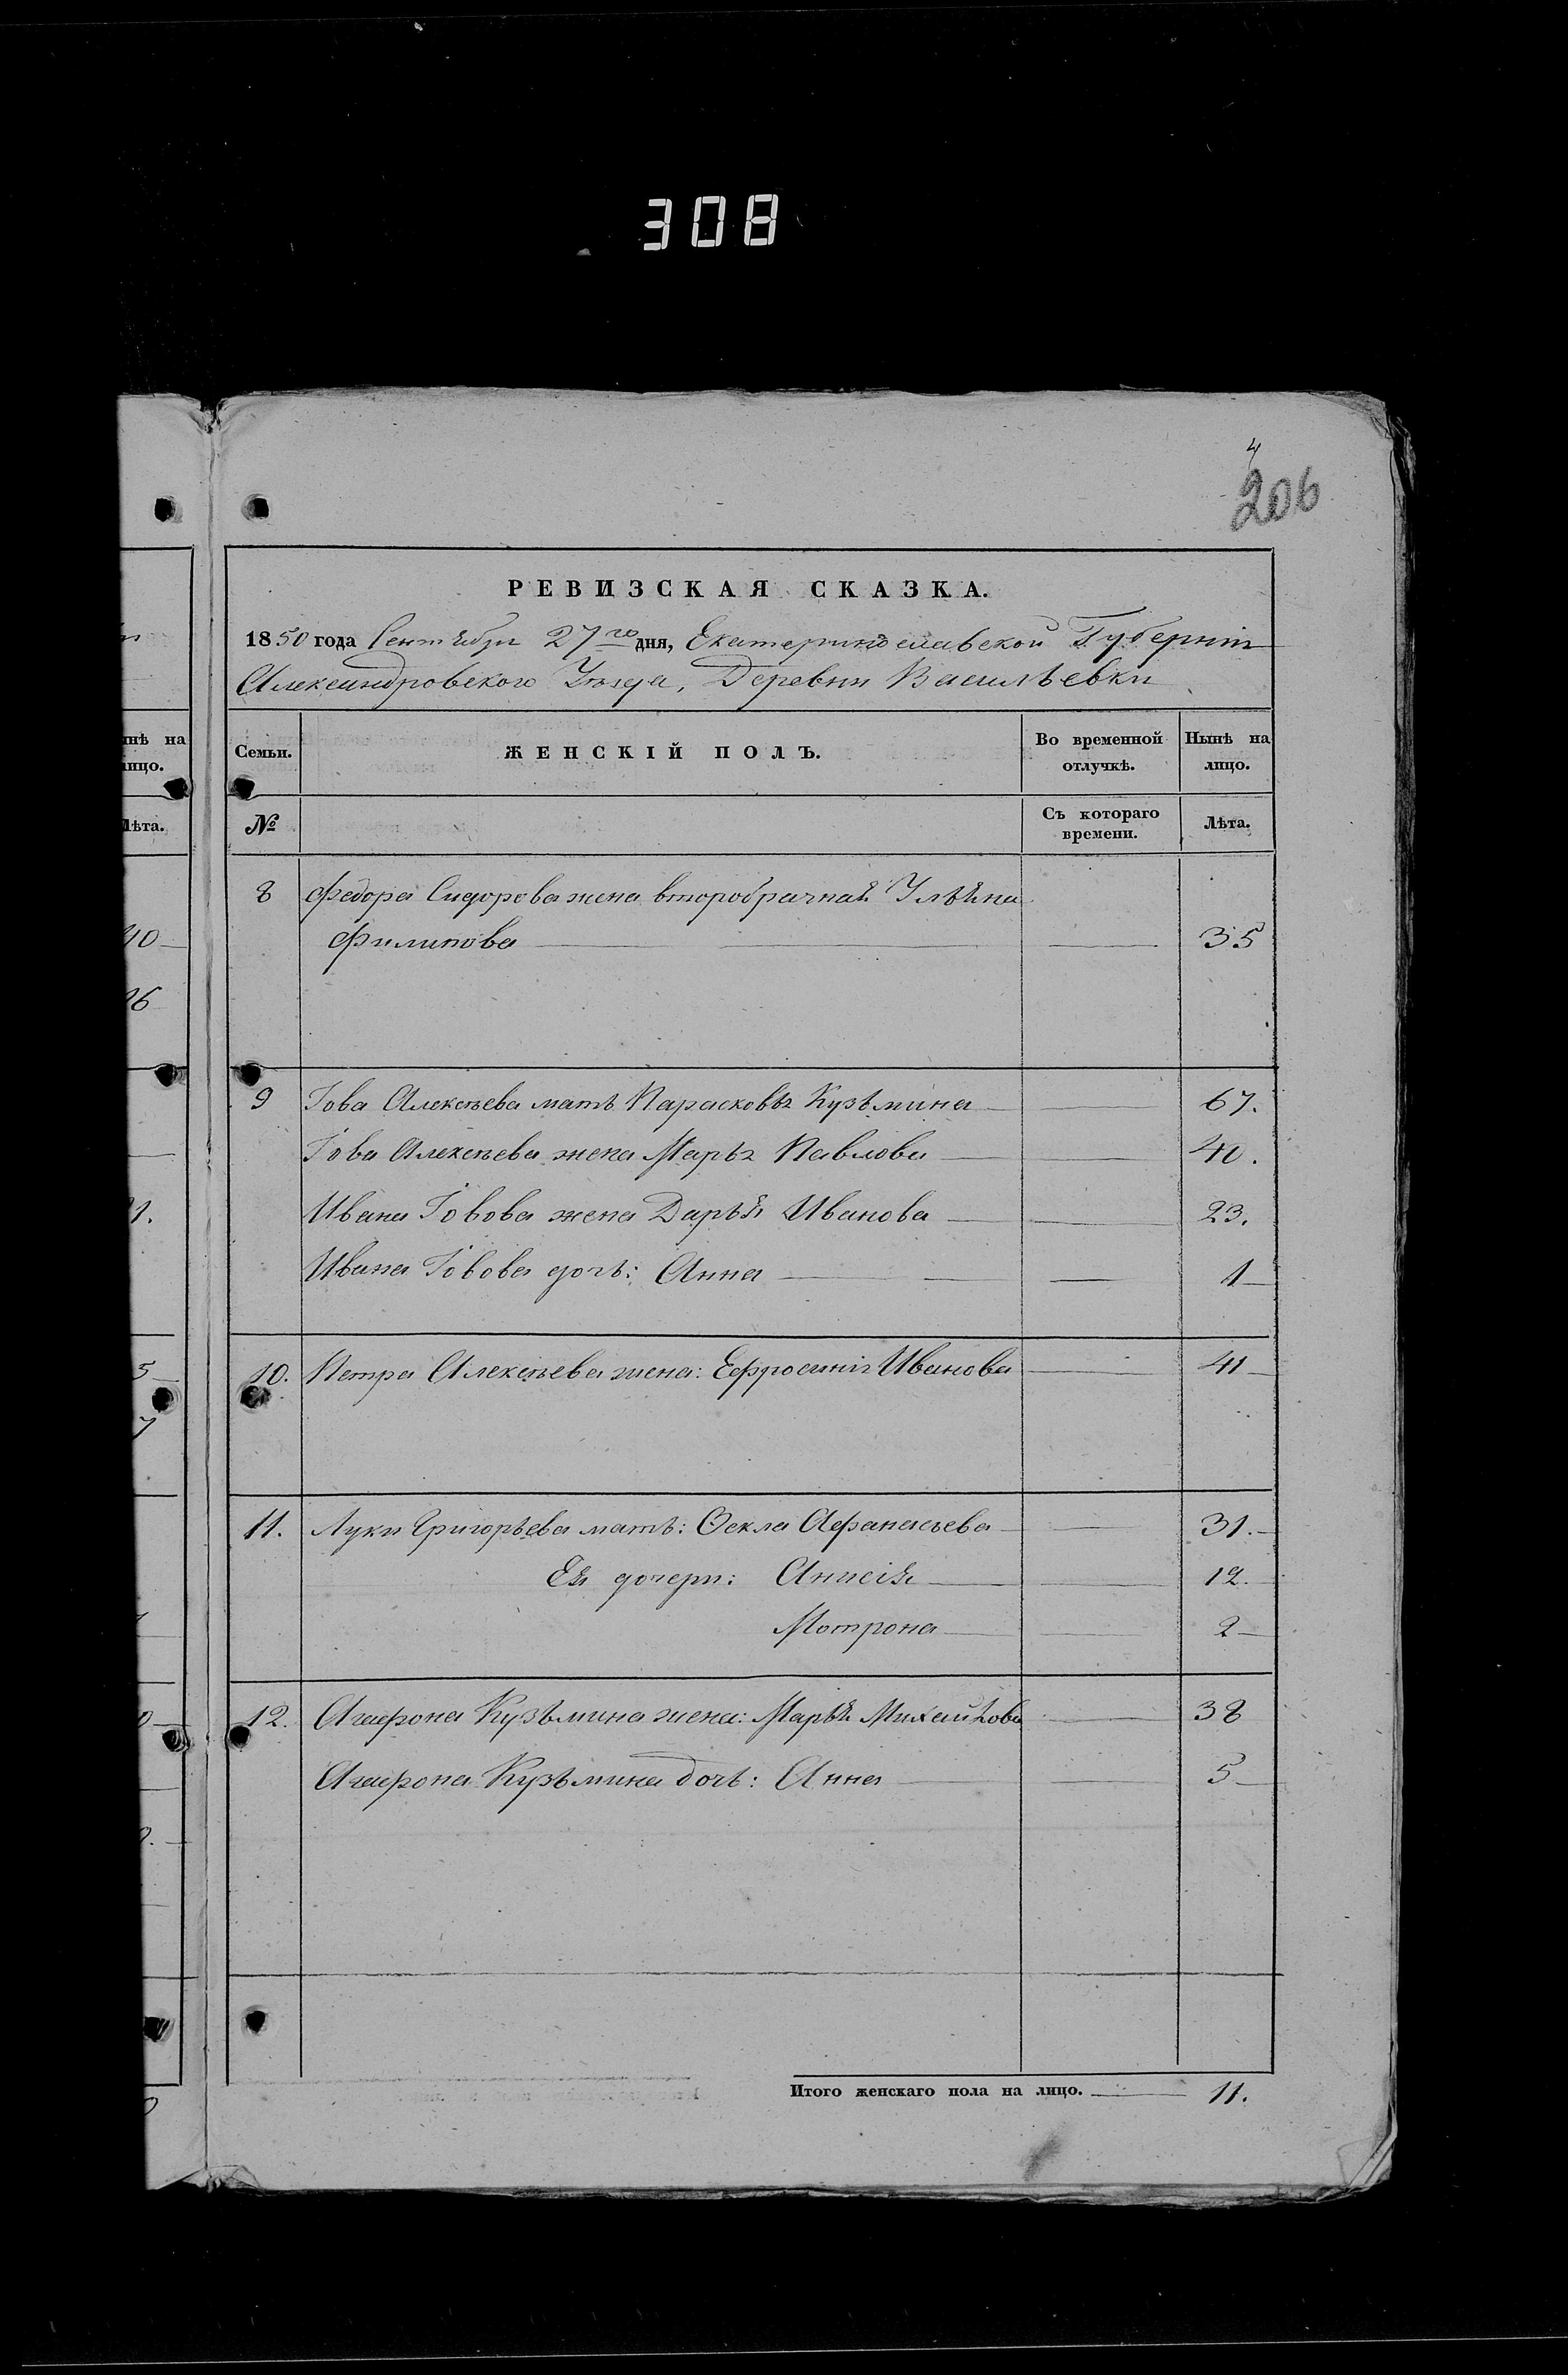 308
4
206
РЕВИЗСКАЯ СКАЗКА.
1850 года Сентября 27го дня, Екатеринославской Губерніи
Александровского Уѣзда, Деревни Васильевки
нѣ на
лицо.
Лѣта.
40
26
1.
5
7
Семьи.
ЖЕНСКІЙ ПОЛЪ.
Во временной отлучкѣ.
Нынѣ на лицо.
№
Съ котораго времени.
Лѣта.
8 Федора Сидорова жена второбрачная Ульяна
Филипова 35
9 Іова Алексѣева мать Парасковья Кузьмина 67.
Іова Алексѣева жена Марья Павлова 40.
Ивана Іовова жена Дарья Иванова 23.
Ивана Іовова дочь: Анна 1
10. Петра Алексѣева жена: Ефросинія Иванова 41
11. Луки Григорьева мать: Ѳекла Афанасьева 31.
Ея дочери: Анисія 12.
Мотрона 2
12. Агафона Кузьмина жена: Марья Михайлова 38
Агафона Кузьмина дочь: Анна 5
Итого женскаго пола на лицо. 11.